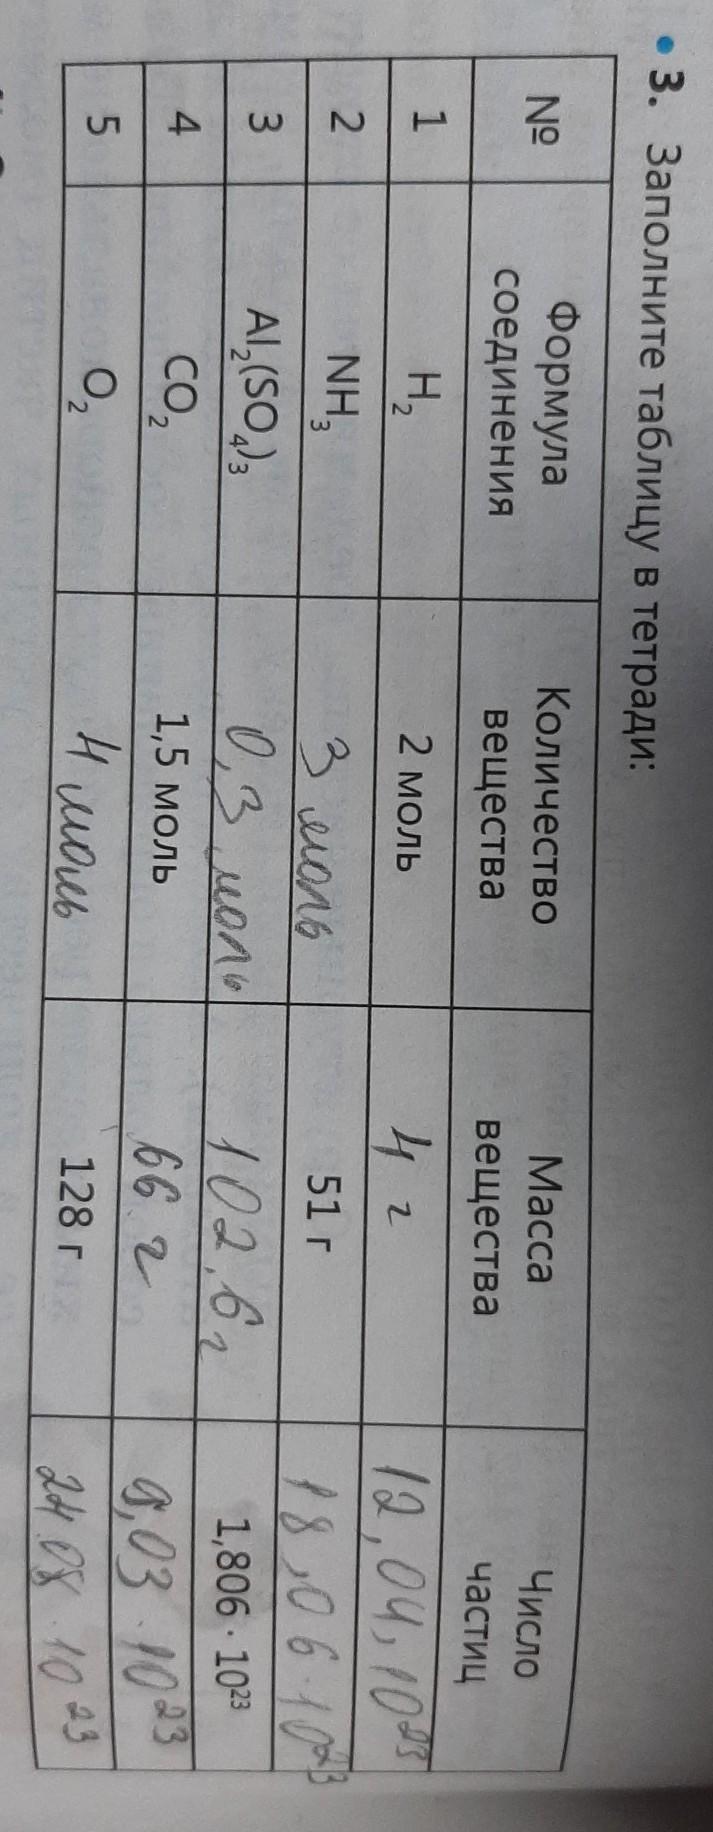 3. Заполните таблицу в тетради:
№ Формула соединения Количество вещества Масса вещества Число частиц
1 H₂ 2 моль 4 г 12,04,10²³
2 NH₃ 3 моль 51 г 18,06·10²³
3 Al₂(SO₄)₃ 0,3 моль 102,6 г 1,806 · 10²³
4 CO₂ 1,5 моль 66 г 9,03·10²³
5 O₂ 4 моль 128 г 24.08·10²³